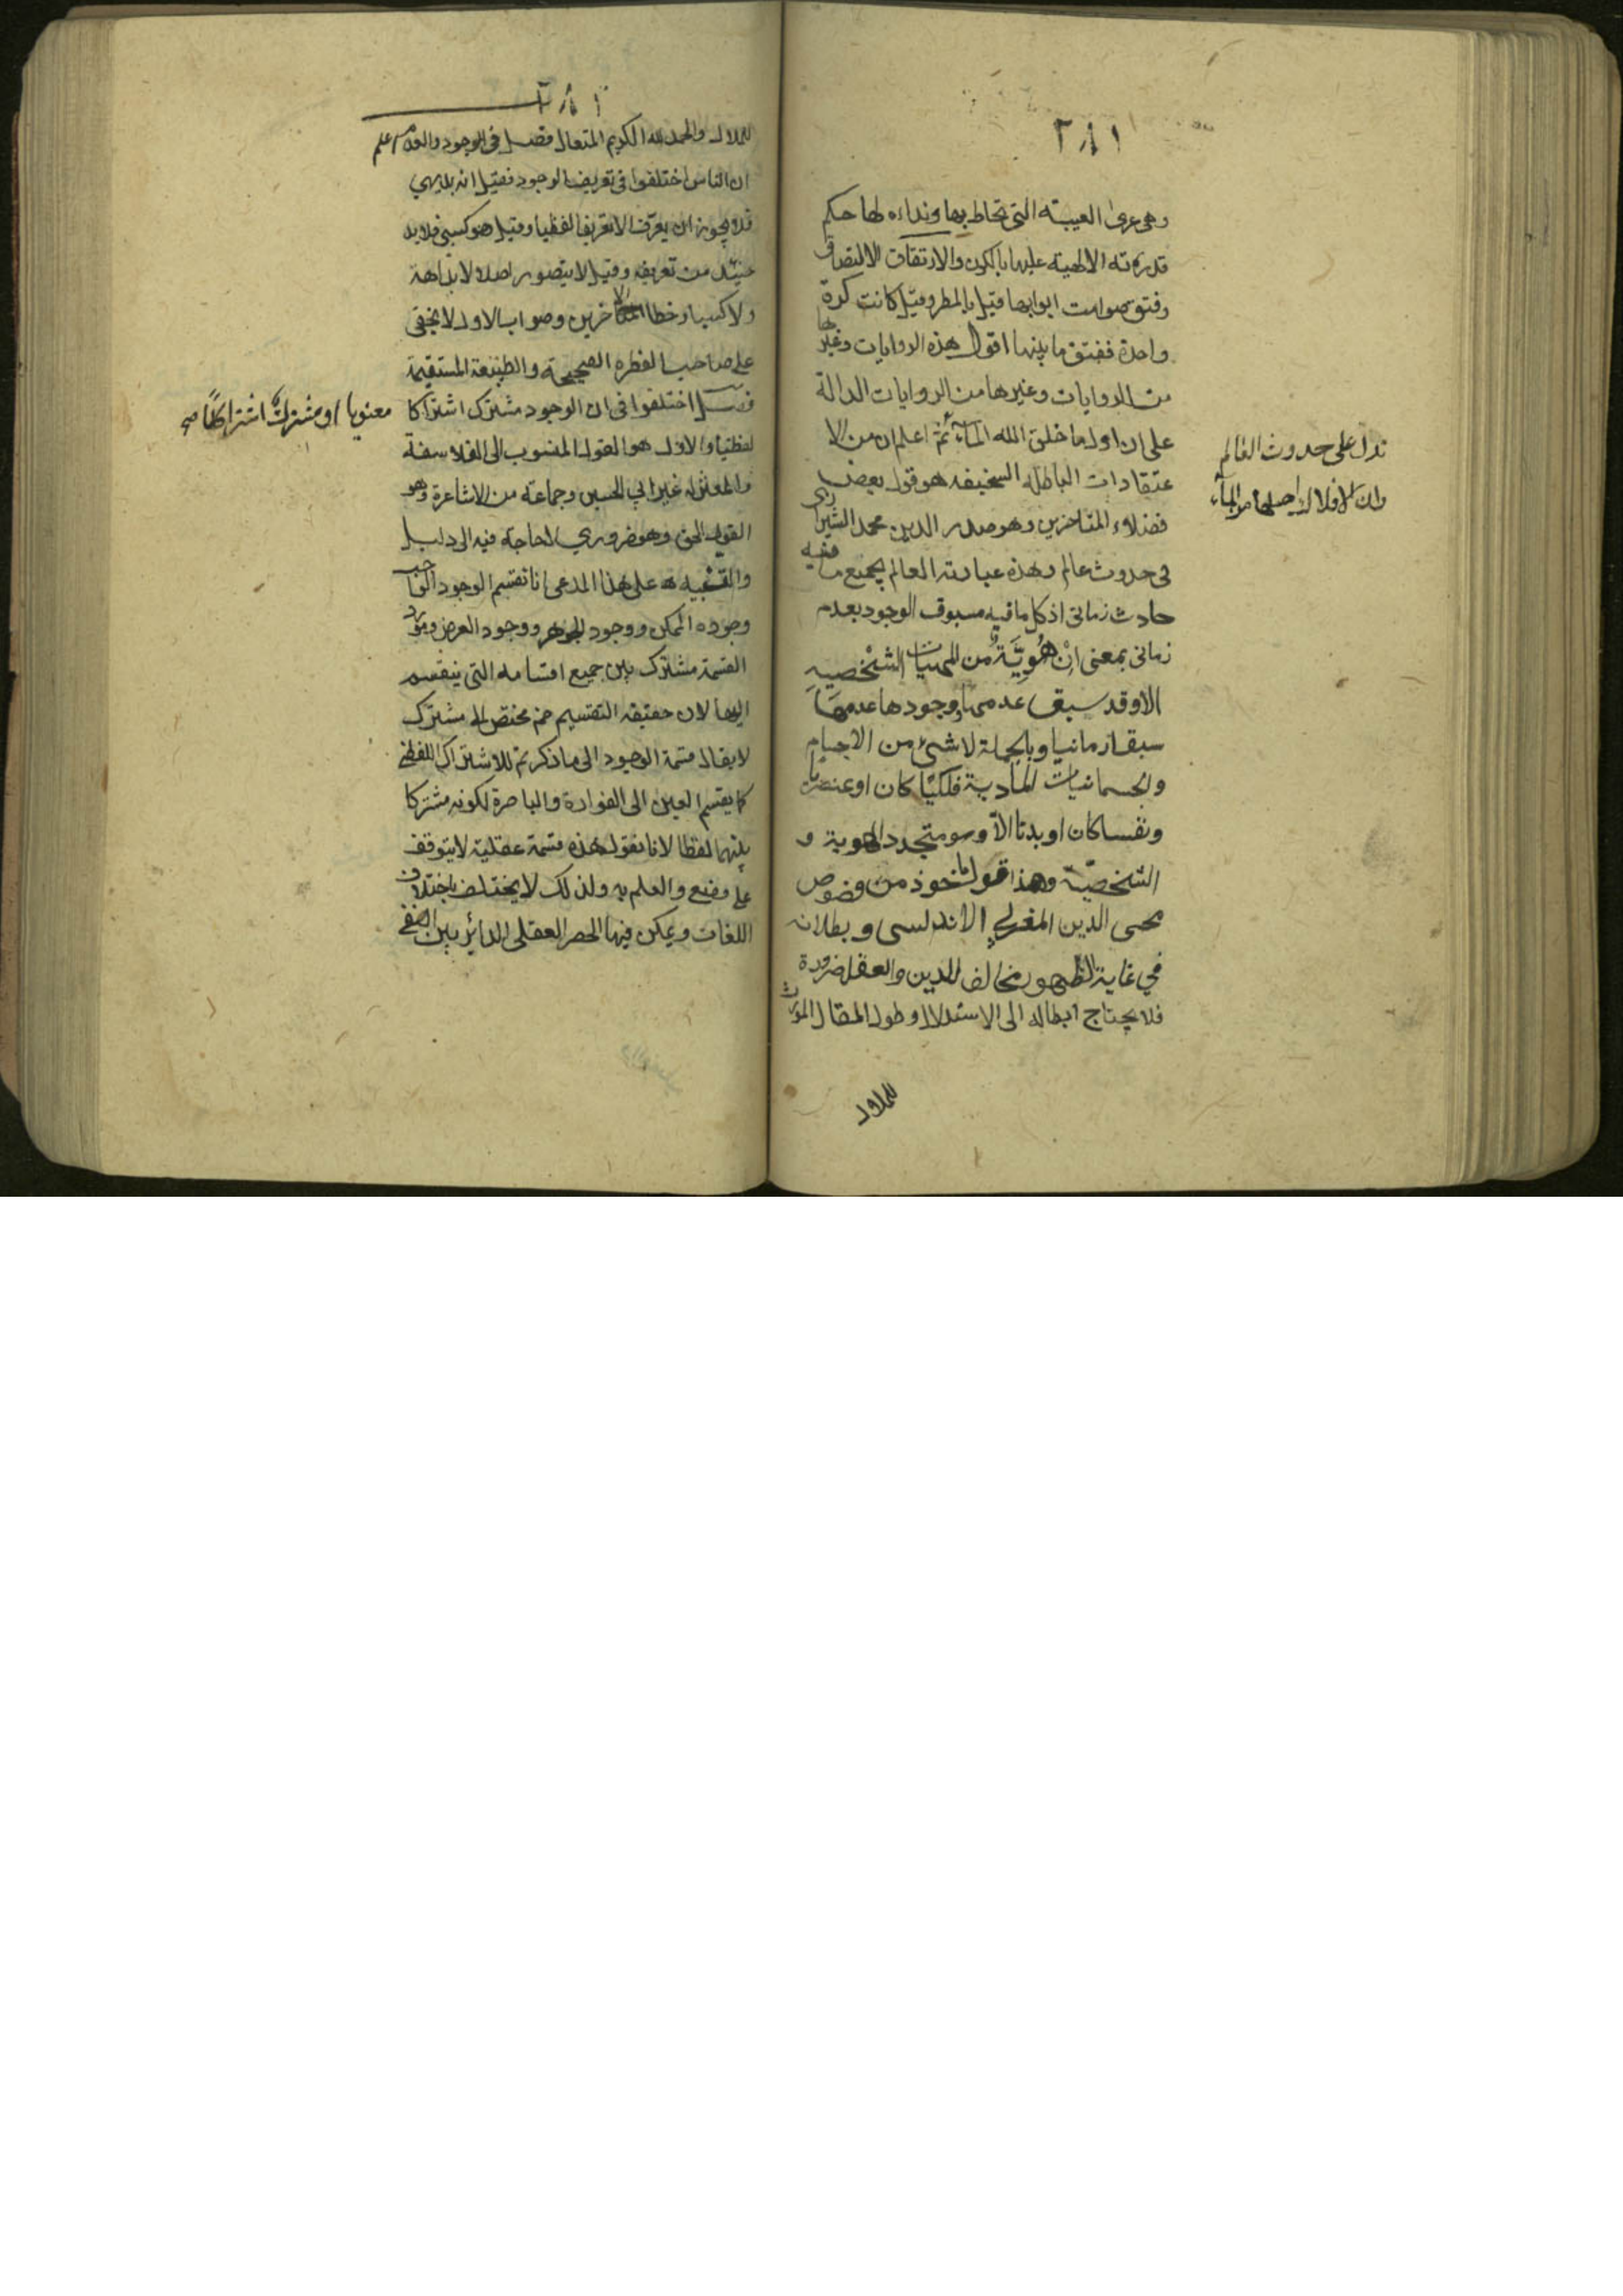 ٢٨١
وهي عرى العيبته التي تحاط بها ونداءه لها حكم
قدرته الالهية عليها بالكون والارتقاق الالتصاق
وفتق صوامت ابوابها قيل بالمطر وقيل كانت كرة
واحدة ففتق ما بينها اقول هذه الروايات وغيرها
من الروايات وغيرها من الروايات الدالة
تدل على حدوث العالم
وان الافلاك اصلها من الماء
على ان اول ما خلق الله الماء ثم اعلم ان من الا
عتقادات الباطلة السخيفه هو قول بعض
فضلاء المتاخرين وهو صدر الدين محمد الشيرازى
في حدوث عالم وهذه عبارته العالم بجميع ما فيه
حادث زماني اذ كل ما فيه مسبوق الوجود بعدم
زماني بمعنى ان هُوِيَّةٌ من الهويات الشخصيه
الا وقد سبق عدمها وجودها عدمها
سبقا زمانيا وبالجملة لا شئ من الاجسام
والجسمانيات المادية فلكيا كان او عنصريا
ونفسا كان او بدنا الا وهو متجدد الهوية و
الشخصية وهذا قول ماخوذ من فصوص
محيى الدين المغربي الاندلسى وبطلانه
في غاية الظهور مخالف للدين والعقل ضرورة
فلا يحتاج ابطاله الى الاستدلال وطول المقال المورث
للملال
٢٨١
للملال والحمد لله الكريم المتعال فصل في الوجود والعدم اعلم
ان الناس اختلفوا في تعريف الوجود فقيل انه بديهي
فلا يجوز ان يعرّف الا تعريفا لفظيا وقيل هو كسبي فلا بد
حينئذ من تعريفه وقيل لا يتصور اصلا لا بداهة
ولا كسبا وخطا الاخرين وصواب الاول لا يخفى
على صاحب الفطره الصحيحة والطبيعة المستقيمة
فصل اختلفوا في ان الوجود مشترك اشتراكا
معنويا او مشترك اشتراكا صح
لفظيا والاول هو القول المنسوب الى الفلاسفة
والمعتزله غير ابي الحسين وجماعة من الاشاعرة وهو
القول الحق وهو ضروري لا حاجة فيه الى دليل
والتنبيه على هذا المدعى انا نقسم الوجود الواجب
وجوده الممكن ووجود الجوهر ووجود العرض ومورد
القسمة مشترك بين جميع اقسامه التي ينقسم
اليها لان حقيقه التقسيم ضم مختص الى مشترك
لا يقال قسمة الوجود الى ما ذكر تم للاشتراك اللفظي
كما يقسم العين الى الفوارة والباصرة لكونه مشتركا
بينهما لفظا لانا نقول هذه قسمة عقلية لا يتوقف
على وضع والعلم به ولذلك لا يختلف باختلاف
اللغات ويمكن فيها الحصر العقلى الدائر بين النفي